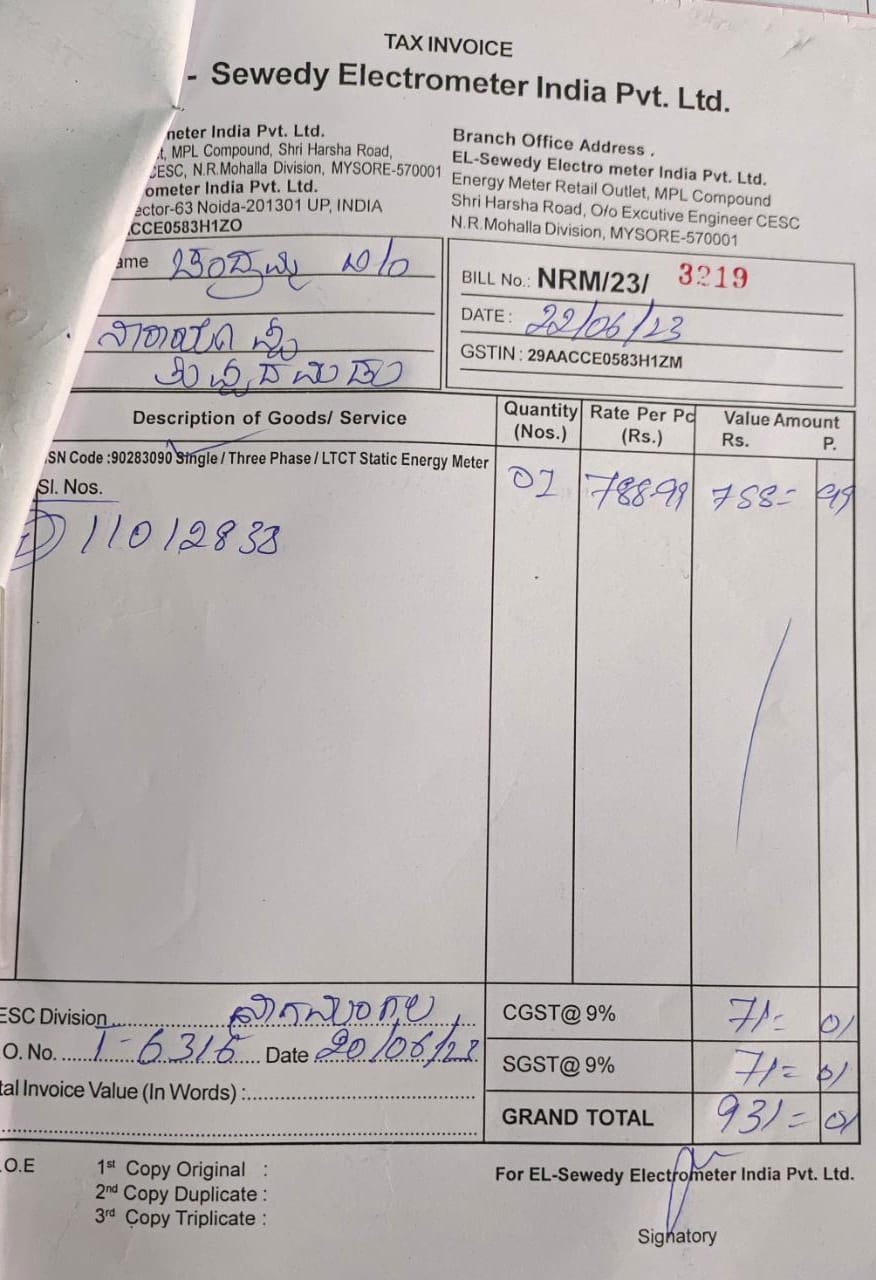 TAX INVOICE
- Sewedy Electrometer India Pvt. Ltd.
neter India Pvt. Ltd.
t, MPL Compound, Shri Harsha Road,
CESC, N.R.Mohalla Division, MYSORE-570001
ometer India Pvt. Ltd.
ector-63 Noida-201301 UP, INDIA
CCE0583H1ZO
Branch Office Address .
EL-Sewedy Electro meter India Pvt. Ltd.
Energy Meter Retail Outlet, MPL Compound
Shri Harsha Road, O/o Excutive Engineer CESC
N.R.Mohalla Division, MYSORE-570001
ame
BILL No.: NRM/23/ 3219
DATE : 22/06/23
GSTIN : 29AACCE0583H1ZM
Description of Goods/ Service Quantity (Nos.) Rate Per Pc (Rs.) Value Amount Rs. P.
SN Code :90283090 Single / Three Phase / LTCT Static Energy Meter
Sl. Nos. 01 788-99 788= 99
1) 11012833
ESC Division
O. No. 1-6316 Date 20/06/23
tal Invoice Value (In Words) :
CGST@ 9% 71= 01
SGST@ 9% 71= 01
GRAND TOTAL 931= 01
.O.E
1st Copy Original :
2nd Copy Duplicate :
3rd Copy Triplicate :
For EL-Sewedy Electrometer India Pvt. Ltd.
Signatory